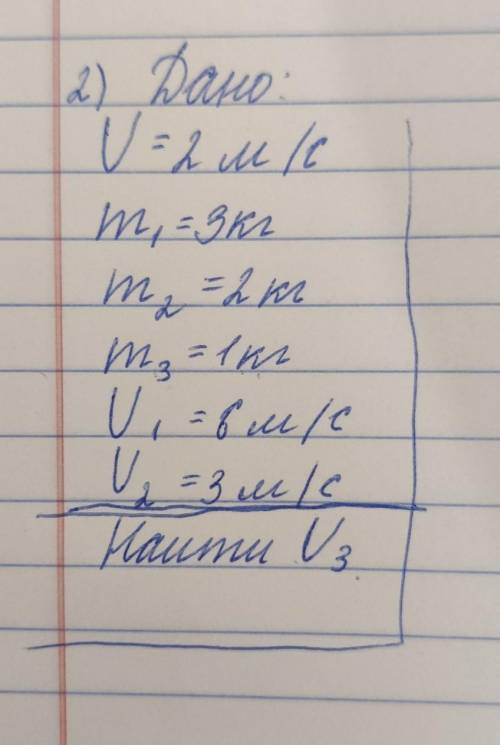 2) Дано:
V = 2 м/с
m₁ = 3кг
m₂ = 2кг
m₃ = 1кг
V₁ = 6 м/с
V₂ = 3 м/с
Найти V₃